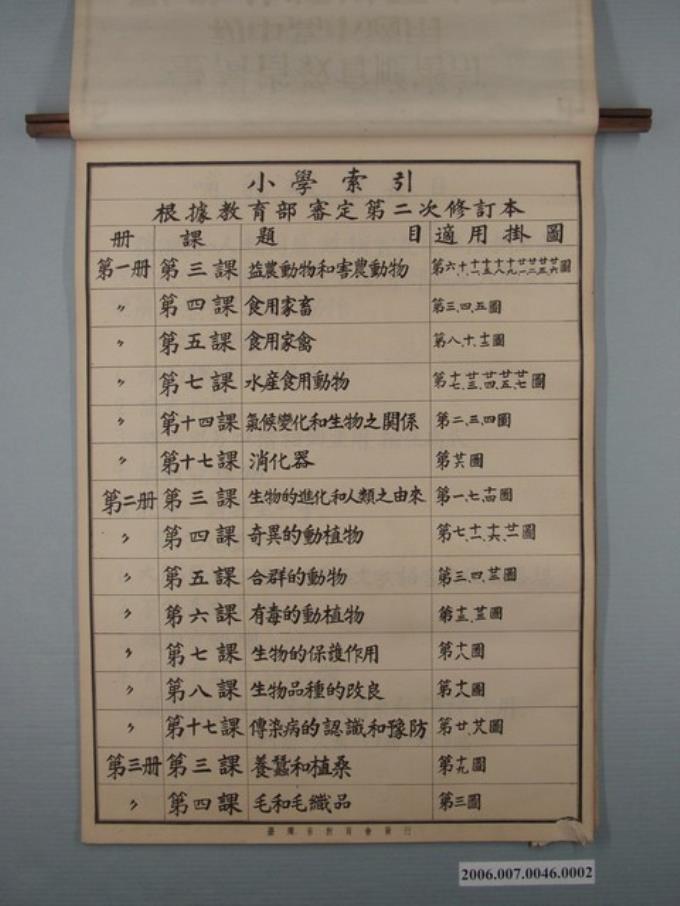 小學索引
根據教育部審定第二次修訂本
册 課 題目 適用掛圖
第一册 第三課 益農動物和害農動物
〃 第四課 食用家畜 第三、四、五圖
〃 第五課 食用家禽 第八、十、十二圖
〃 第七課 水產食用動物 第十七、廿三、廿四、廿五、廿七圖
〃 第十四課 氣候變化和生物之關係 第二、三、四圖
〃 第十七課 消化器 第廿六圖
第二册 第三課 生物的進化和人類之由來 第一、七、十四圖
〃 第四課 奇異的動植物 第七、十二、十六、廿一圖
〃 第五課 合群的動物 第三、四、廿三圖
〃 第六課 有毒的動植物
〃 第七課 生物的保護作用 第十八圖
〃 第八課 生物品種的改良 第十八圖
〃 第十七課 傳染病的認識和豫防
第三册 第三課 養蠶和植桑 第十九圖
〃 第四課 毛和毛織品 第三圖
臺灣省教育會發行
2006.007.0046.0002